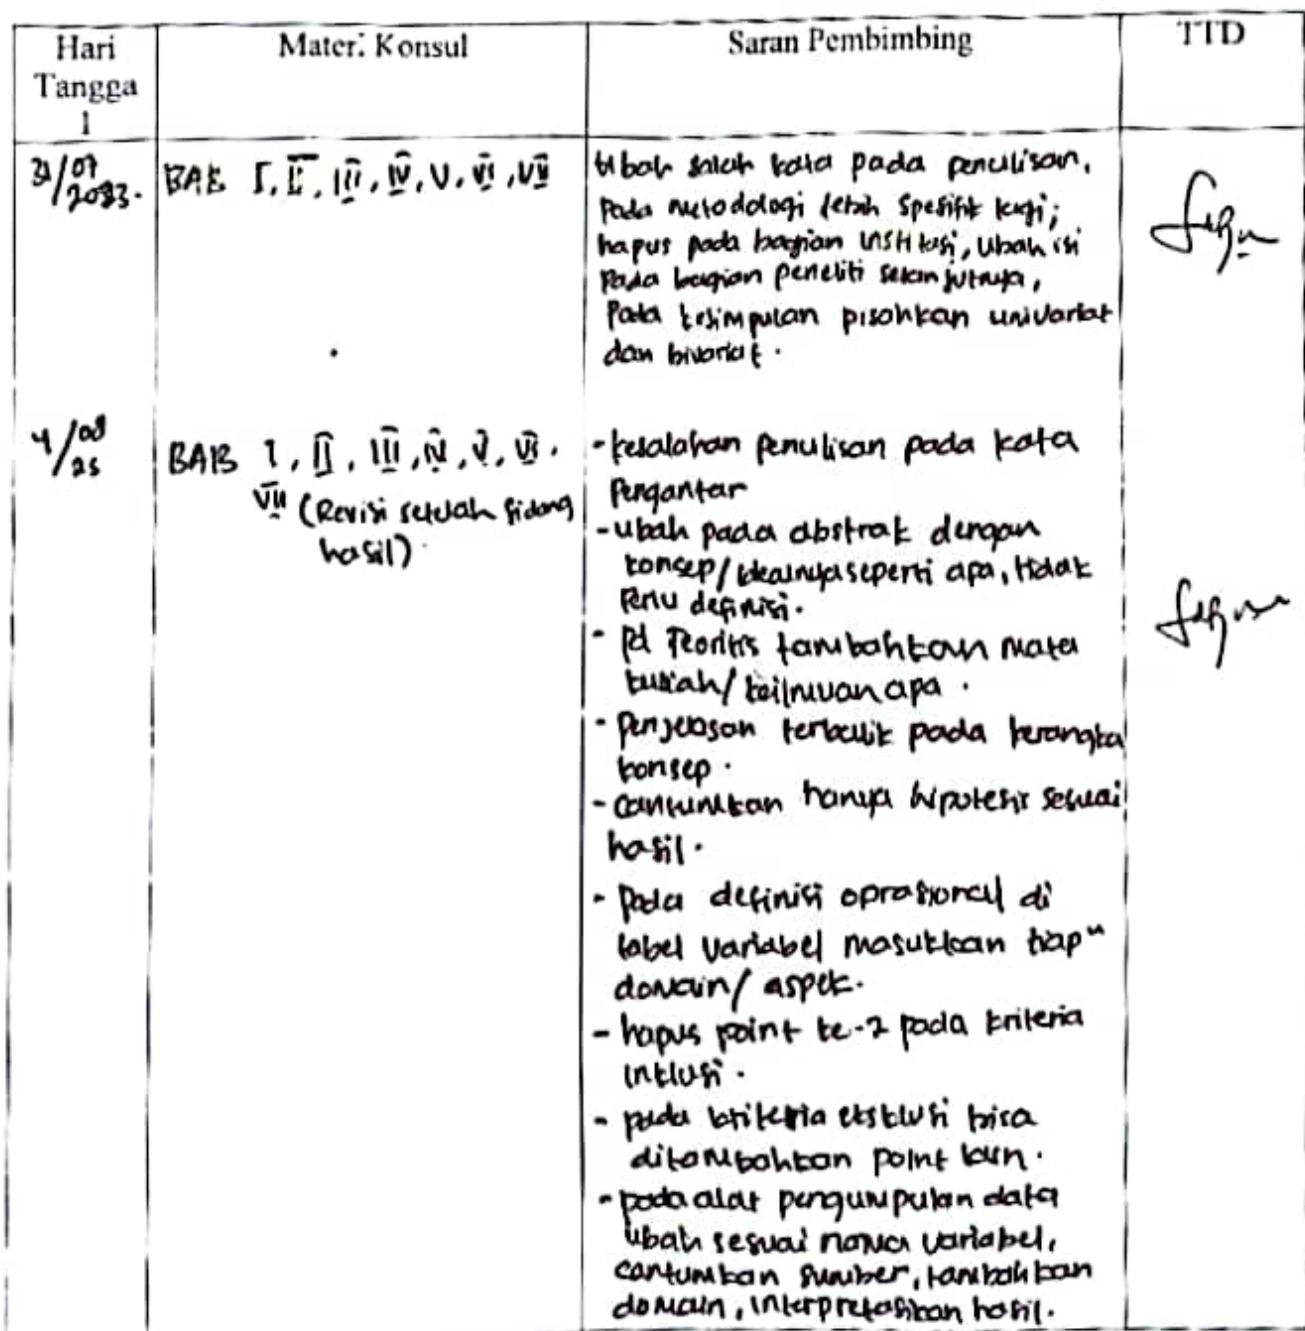 Hari
Tangga
l
Materi Konsul
Saran Pembimbing
TTD
31/07
2023.
BAB I, II, III, IV, V, VI, VII
Ubah salah kata pada penulisan,
pada metodologi lebih spesifik lagi;
hapus pada bagian institusi, ubah isi
pada bagian peneliti selanjutnya,
pada kesimpulan pisahkan univariat
dan bivariat.
4/08
25
BAB I, II, III, IV, V, VI,
VII (Revisi setelah sidang
hasil).
- kesalahan penulisan pada kata
pengantar
- ubah pada abstrak dengan
konsep/idealnya seperti apa, tidak
perlu definisi.
- Pd Teoritis tambahkan mata
kuliah/keilmuan apa.
- Penjelasan terbalik pada kerangka
konsep.
- cantumkan hanya hipotesis sesuai
hasil.
- Pada definisi oprasional di
tabel variabel masukkan tiap"
domain/aspek.
- hapus point ke-2 pada kriteria
inklusi.
- pada kriteria eksklusi bisa
ditambahkan point lain.
- pada alat pengumpulan data
ubah sesuai nama variabel,
cantumkan sumber, tambahkan
domain, interpretasikan hasil.